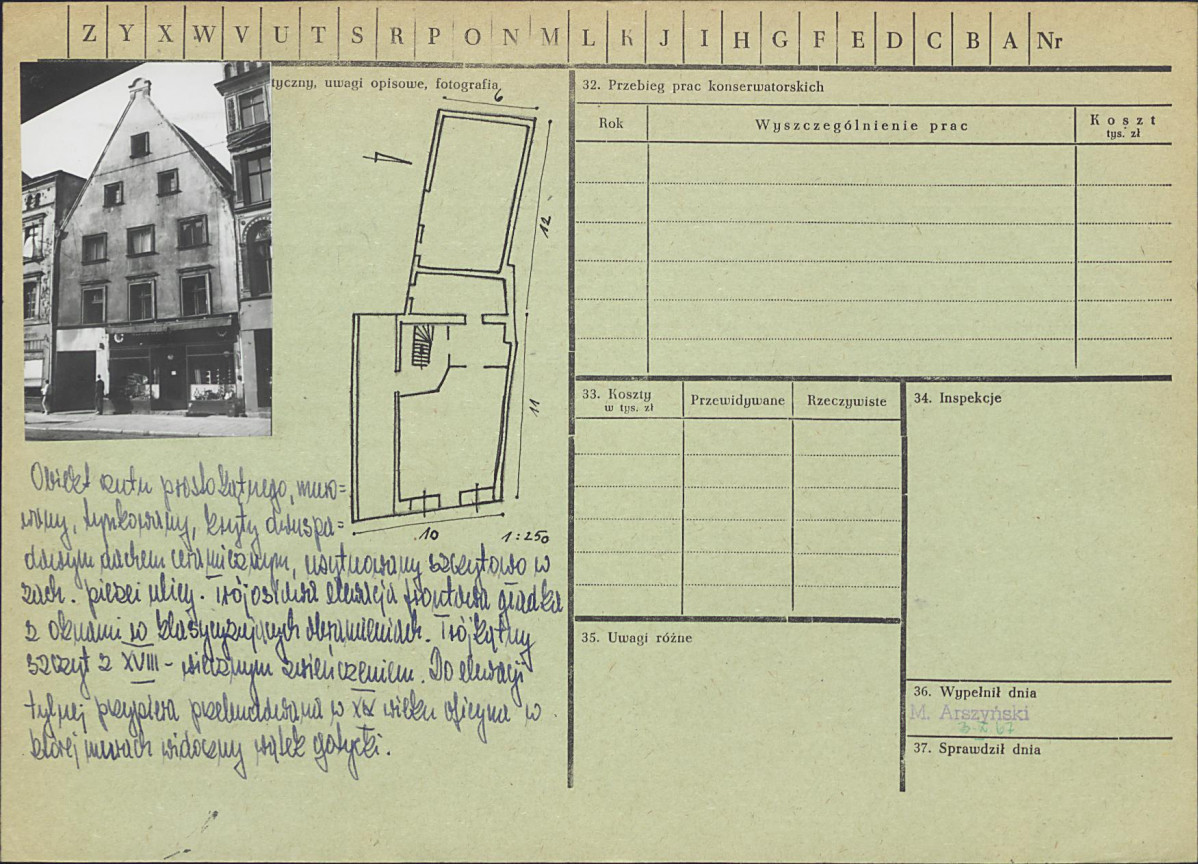 Z Y X W V U T S R P O N M L K J I H G F E D C B A Nr
tyczny, uwagi opisowe, fotografia
6
12
11
10
1:250
Obiekt rzutu prostokątnego, muro=
wany, tynkowany, kryty dwuspa=
dowym dachem ceramicznym, usytuowany szczytowo w
zach. pierzei ulicy. Trójosiowa elewacja frontowa gładka
z oknami w klasycyzujących obramieniach. Trójkątny
szczyt z XVIII-wiecznym zwieńczeniem. Do elewacji
tylnej przypiera przebudowana w XIX wieku oficyna w
której murach widoczny wątek gotycki.
32. Przebieg prac konserwatorskich
Rok Wyszczególnienie prac Koszt
tys. zł
33. Koszty
w tys. zł
Przewidywane Rzeczywiste
34. Inspekcje
35. Uwagi różne
36. Wypełnił dnia
M. Arszyński
37. Sprawdził dnia